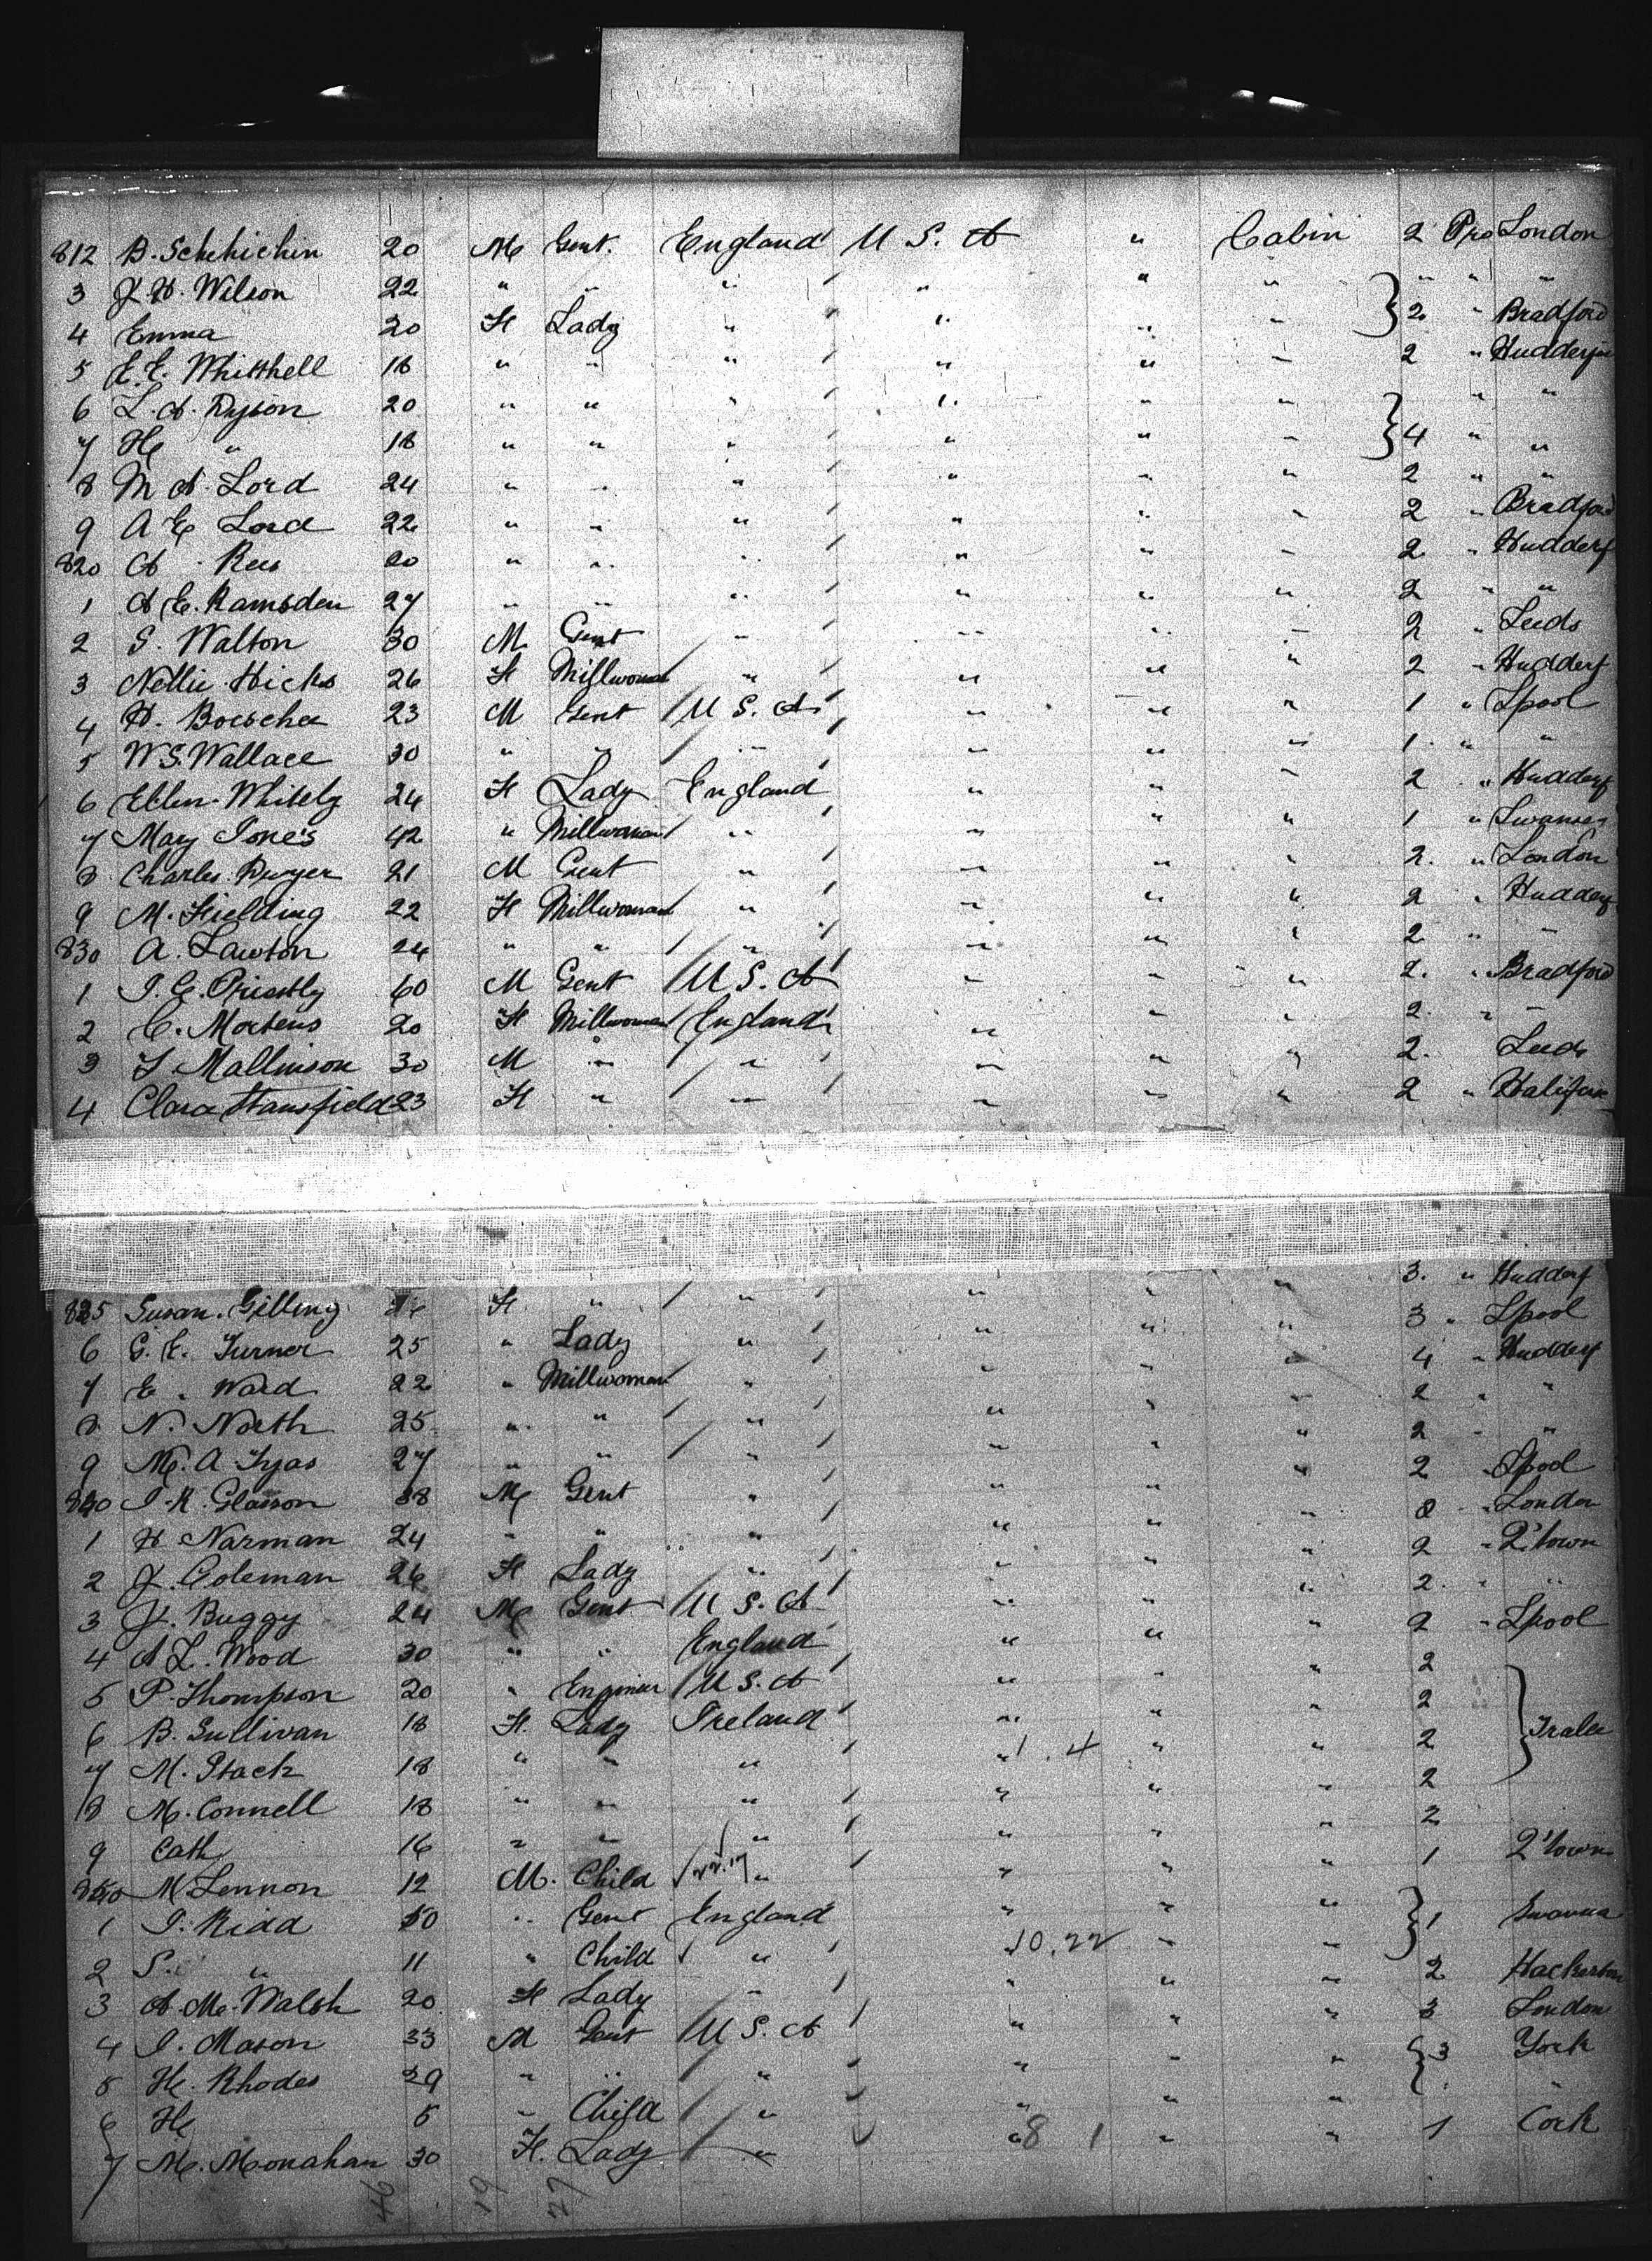 812 B. Schhichin 20 M Gent. England U S. A " Cabin 2 Pro London
3 J H. Wilson 22 " " " " " " " " "
4 Emma 20 F Lady " " " " 2 " Bradford
5 E. E. Whitthell 18 " " " " " " 2 " Hudderf
6 L. A. Dyson 20 " " " " " " " "
7 H " 18 " " " " " " 4 " "
8 M A. Lord 24 " " " " " " 2 " "
9 A E Lord 22 " " " " " " 2 " Bradford
820 A. Rees 20 " " " " " " 2 " Hudderf
1 A E. Ramsden 27 " " " " " " 2 " "
2 S. Walton 30 M Gent " " " " 2 " Leeds
3 Nellie Hicks 26 F Millwoman " " " " 2 " Hudderf
4 H. Boescher 23 M Gent U S. A " " " 1 " Lpool
5 W S. Wallace 30 " " " " " " 1 " "
6 Ellen Whitely 24 F Lady England " " " 2 " Hudderf
7 Mary Jones 42 " Millwoman " " " " 1 " Swansea
8 Charles Dwyer 21 M Gent " " " " 2. " London
9 M. Fielding 22 F Millwoman " " " " 2 " Hudderf
830 A. Lawton 24 " " " " " " 2 " "
1 J. E. Priestly 60 M Gent U S. A " " " 2. " Bradford
2 C. Mortens 20 F Millwoman England " " " 2. " "
3 J Mallinson 30 M " " " " " 2. Leeds
4 Clara Stansfield 23 F " " " " " 2 " Halifax
835 Susan. Gilling F " " " " " 3. " Hudderf
6 G. E. Turner 25 " Lady " " " " 3 " Lpool
7 E. Ward 22 " Millwoman " " " " 4 " Hudderf
8 N. North 25 " " " " " " 2 " "
9 M. A Tyas 27 " " " " " " 2 " "
840 J. R. Glasson 38 M Gent " " " " 2 " Lpool
1 H Narman 24 " " " " " " 8 " London
2 J. Coleman 26 F Lady " " " " 2 " Q'town
3 J. Buggy 24 M Gent U S. A " " " 2. " "
4 A L. Wood 30 " " England " " " 2 " Lpool
5 P. Thompson 20 " Engineer U S. A " " " 2
6 B. Sullivan 18 F. Lady Ireland " " " 2 Tralee
7 M. Stack 18 " " " " 1. 4 " " 2
8 M. Connell 18 " " " " " " 2
9 Cath 16 " " " " " " 2
850 M Lennon 12 M. Child " " " " 1 Q'town
1 J. Kidd 50 " Gent England " " " 1 Swansea
2 S. " 11 " Child " 10.22 " "
3 A. M. Walsh 20 F Lady " " " " 2
4 J. Mason 33 M Gent U S. A " " " 3 London
5 H. Rhodes 29 " " " " " " 3 York
6 H 5 " Child " " " "
7 M. Monahan 30 F. Lady " " 8 1 " " 1 Cork
46 19 27